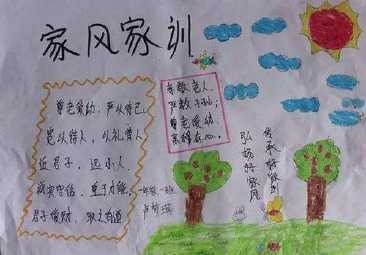 家风家训
尊老爱幼，严以待己，
宽以待人，以礼贤人
近君子，远小人，
诚实守信，重于才能，
君子爱财，取之有道
孝敬老人，
严教子孙；
尊老爱幼
亲穆存心。
一年级一班
传承好家训
弘扬好家风